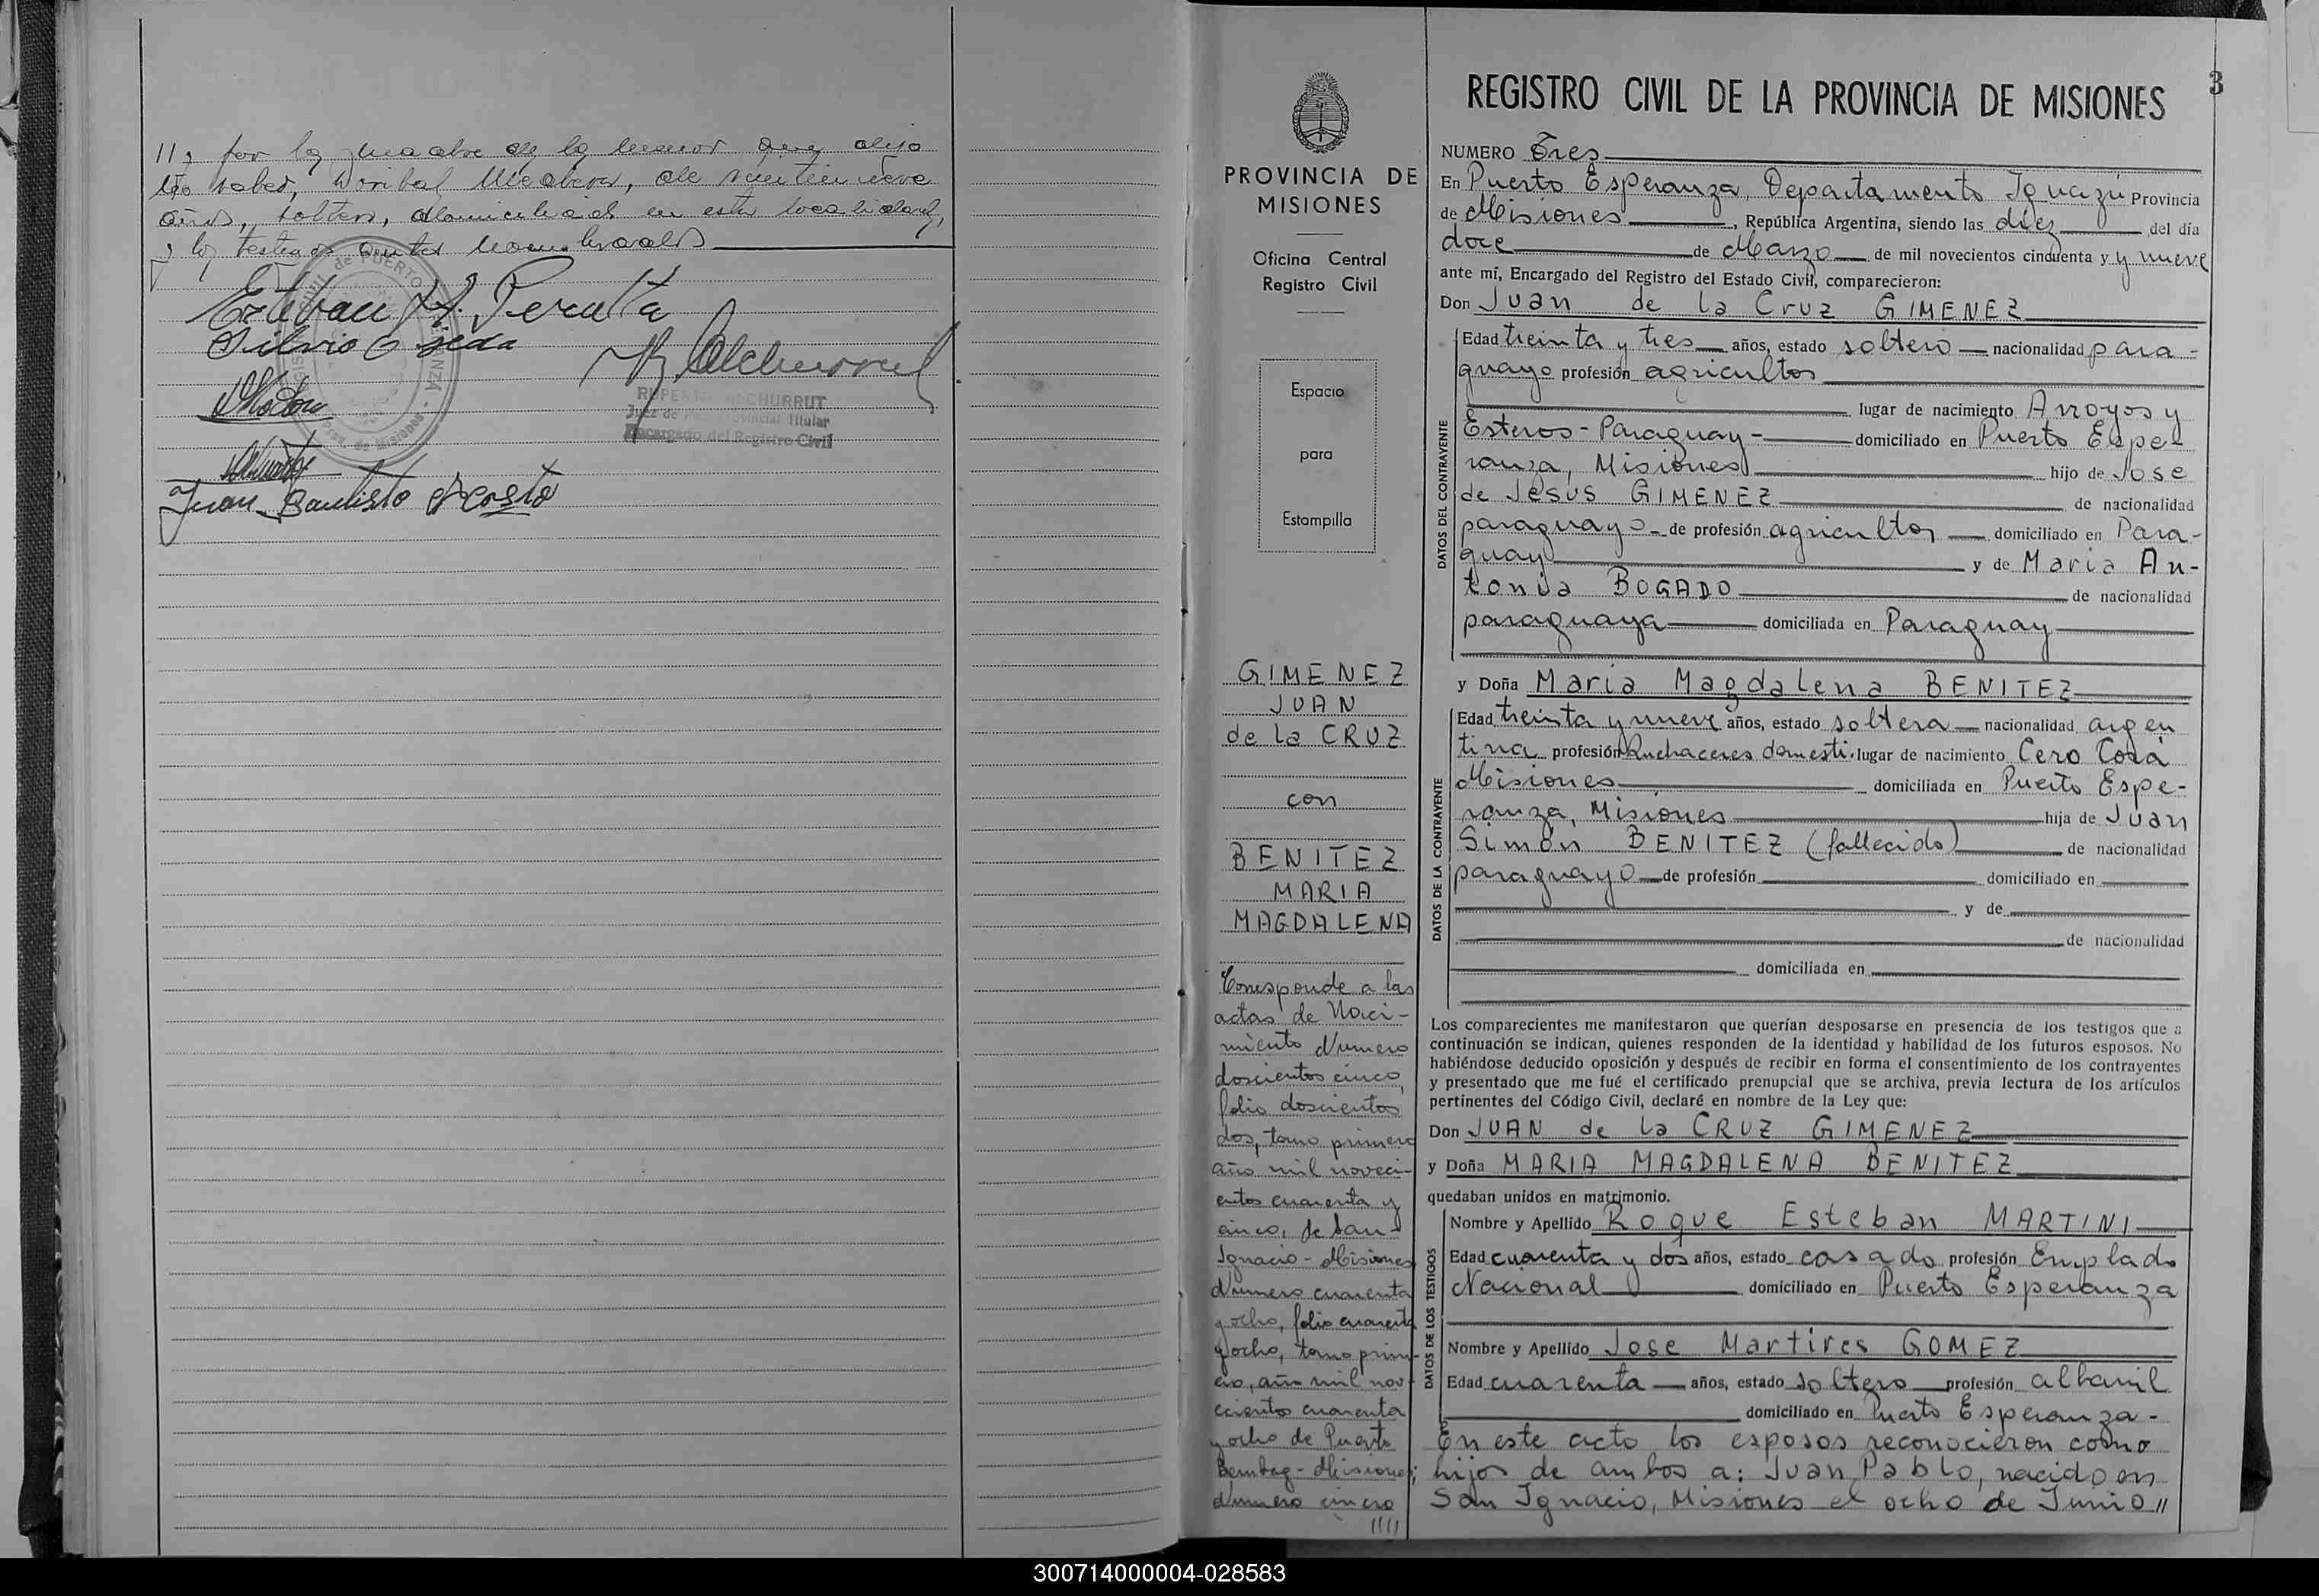 11, por la madre de la menor que dijo
ser
años, soltero, domiciliado en esta localidad,
y los testigos antes nombrados
Esteban A. Peralta
Silvio Ojeda
Juan Bautista Acosta
RUPERTO ALCHURRUT
Juez de Paz Provincial Titular
Encargado del Registro Civil
3
PROVINCIA DE
MISIONES
Oficina Central
Registro Civil
Espacio
para
Estampilla
GIMENEZ
JUAN
de la CRUZ
con
BENITEZ
MARIA
MAGDALENA
Corresponde a las
actas de Naci-
miento Numero
doscientos cinco,
folio doscientos
dos, tomo primero
año mil noveci-
entos cuarenta y
cinco, de San
Ignacio - Misiones
Numero cuarenta
y ocho, folio cuarenta
y ocho, tomo prim-
ero, año mil nov-
ecientos cuarenta
y ocho de Puerto
Bemberg - Misiones;
Numero cinco
////
REGISTRO CIVIL DE LA PROVINCIA DE MISIONES
NUMERO Tres
En Puerto Esperanza, Departamento Iguazú Provincia
de Misiones, República Argentina, siendo las diez del día
doce de Marzo de mil novecientos cincuenta y y nueve
ante mí, Encargado del Registro del Estado Civil, comparecieron:
Don Juan de la Cruz GIMENEZ
DATOS DEL CONTRAYENTE
Edad treinta y tres años, estado soltero nacionalidad para-
guayo profesión agricultor
lugar de nacimiento Arroyos y
Esteros - Paraguay - domiciliado en Puerto Espe-
ranza, Misiones hijo de Jose
de Jesús GIMENEZ de nacionalidad
paraguayo de profesión agricultor domiciliado en Para-
guay y de Maria An-
tonia BOGADO de nacionalidad
paraguaya domiciliada en Paraguay
y Doña Maria Magdalena BENITEZ
DATOS DE LA CONTRAYENTE
Edad treinta y nueve años, estado soltera nacionalidad argen
tina profesión Quehaceres domesti. lugar de nacimiento Cero Corá
Misiones domiciliada en Puerto Espe-
ranza, Misiones hija de Juan
Simón BENITEZ (fallecido) de nacionalidad
paraguayo de profesión domiciliado en
y de
de nacionalidad
domiciliada en
Los comparecientes me manifestaron que querían desposarse en presencia de los testigos que a
continuación se indican, quienes responden de la identidad y habilidad de los futuros esposos. No
habiéndose deducido oposición y después de recibir en forma el consentimiento de los contrayentes
y presentado que me fué el certificado prenupcial que se archiva, previa lectura de los artículos
pertinentes del Código Civil, declaré en nombre de la Ley que:
Don JUAN de la CRUZ GIMENEZ
y Doña MARIA MAGDALENA BENITEZ
quedaban unidos en matrimonio.
DATOS DE LOS TESTIGOS
Nombre y Apellido Roque Esteban MARTINI
Edad cuarenta y dos años, estado casado profesión Emplado
Nacional domiciliado en Puerto Esperanza
Nombre y Apellido Jose Martires GOMEZ
Edad cuarenta años, estado soltero profesión albanil
domiciliado en Puerto Esperanza -
En este acto los esposos reconocieron como
hijos de ambos a: Juan Pablo, nacido en
San Ignacio, Misiones el ocho de Junio //
300714000004-028583